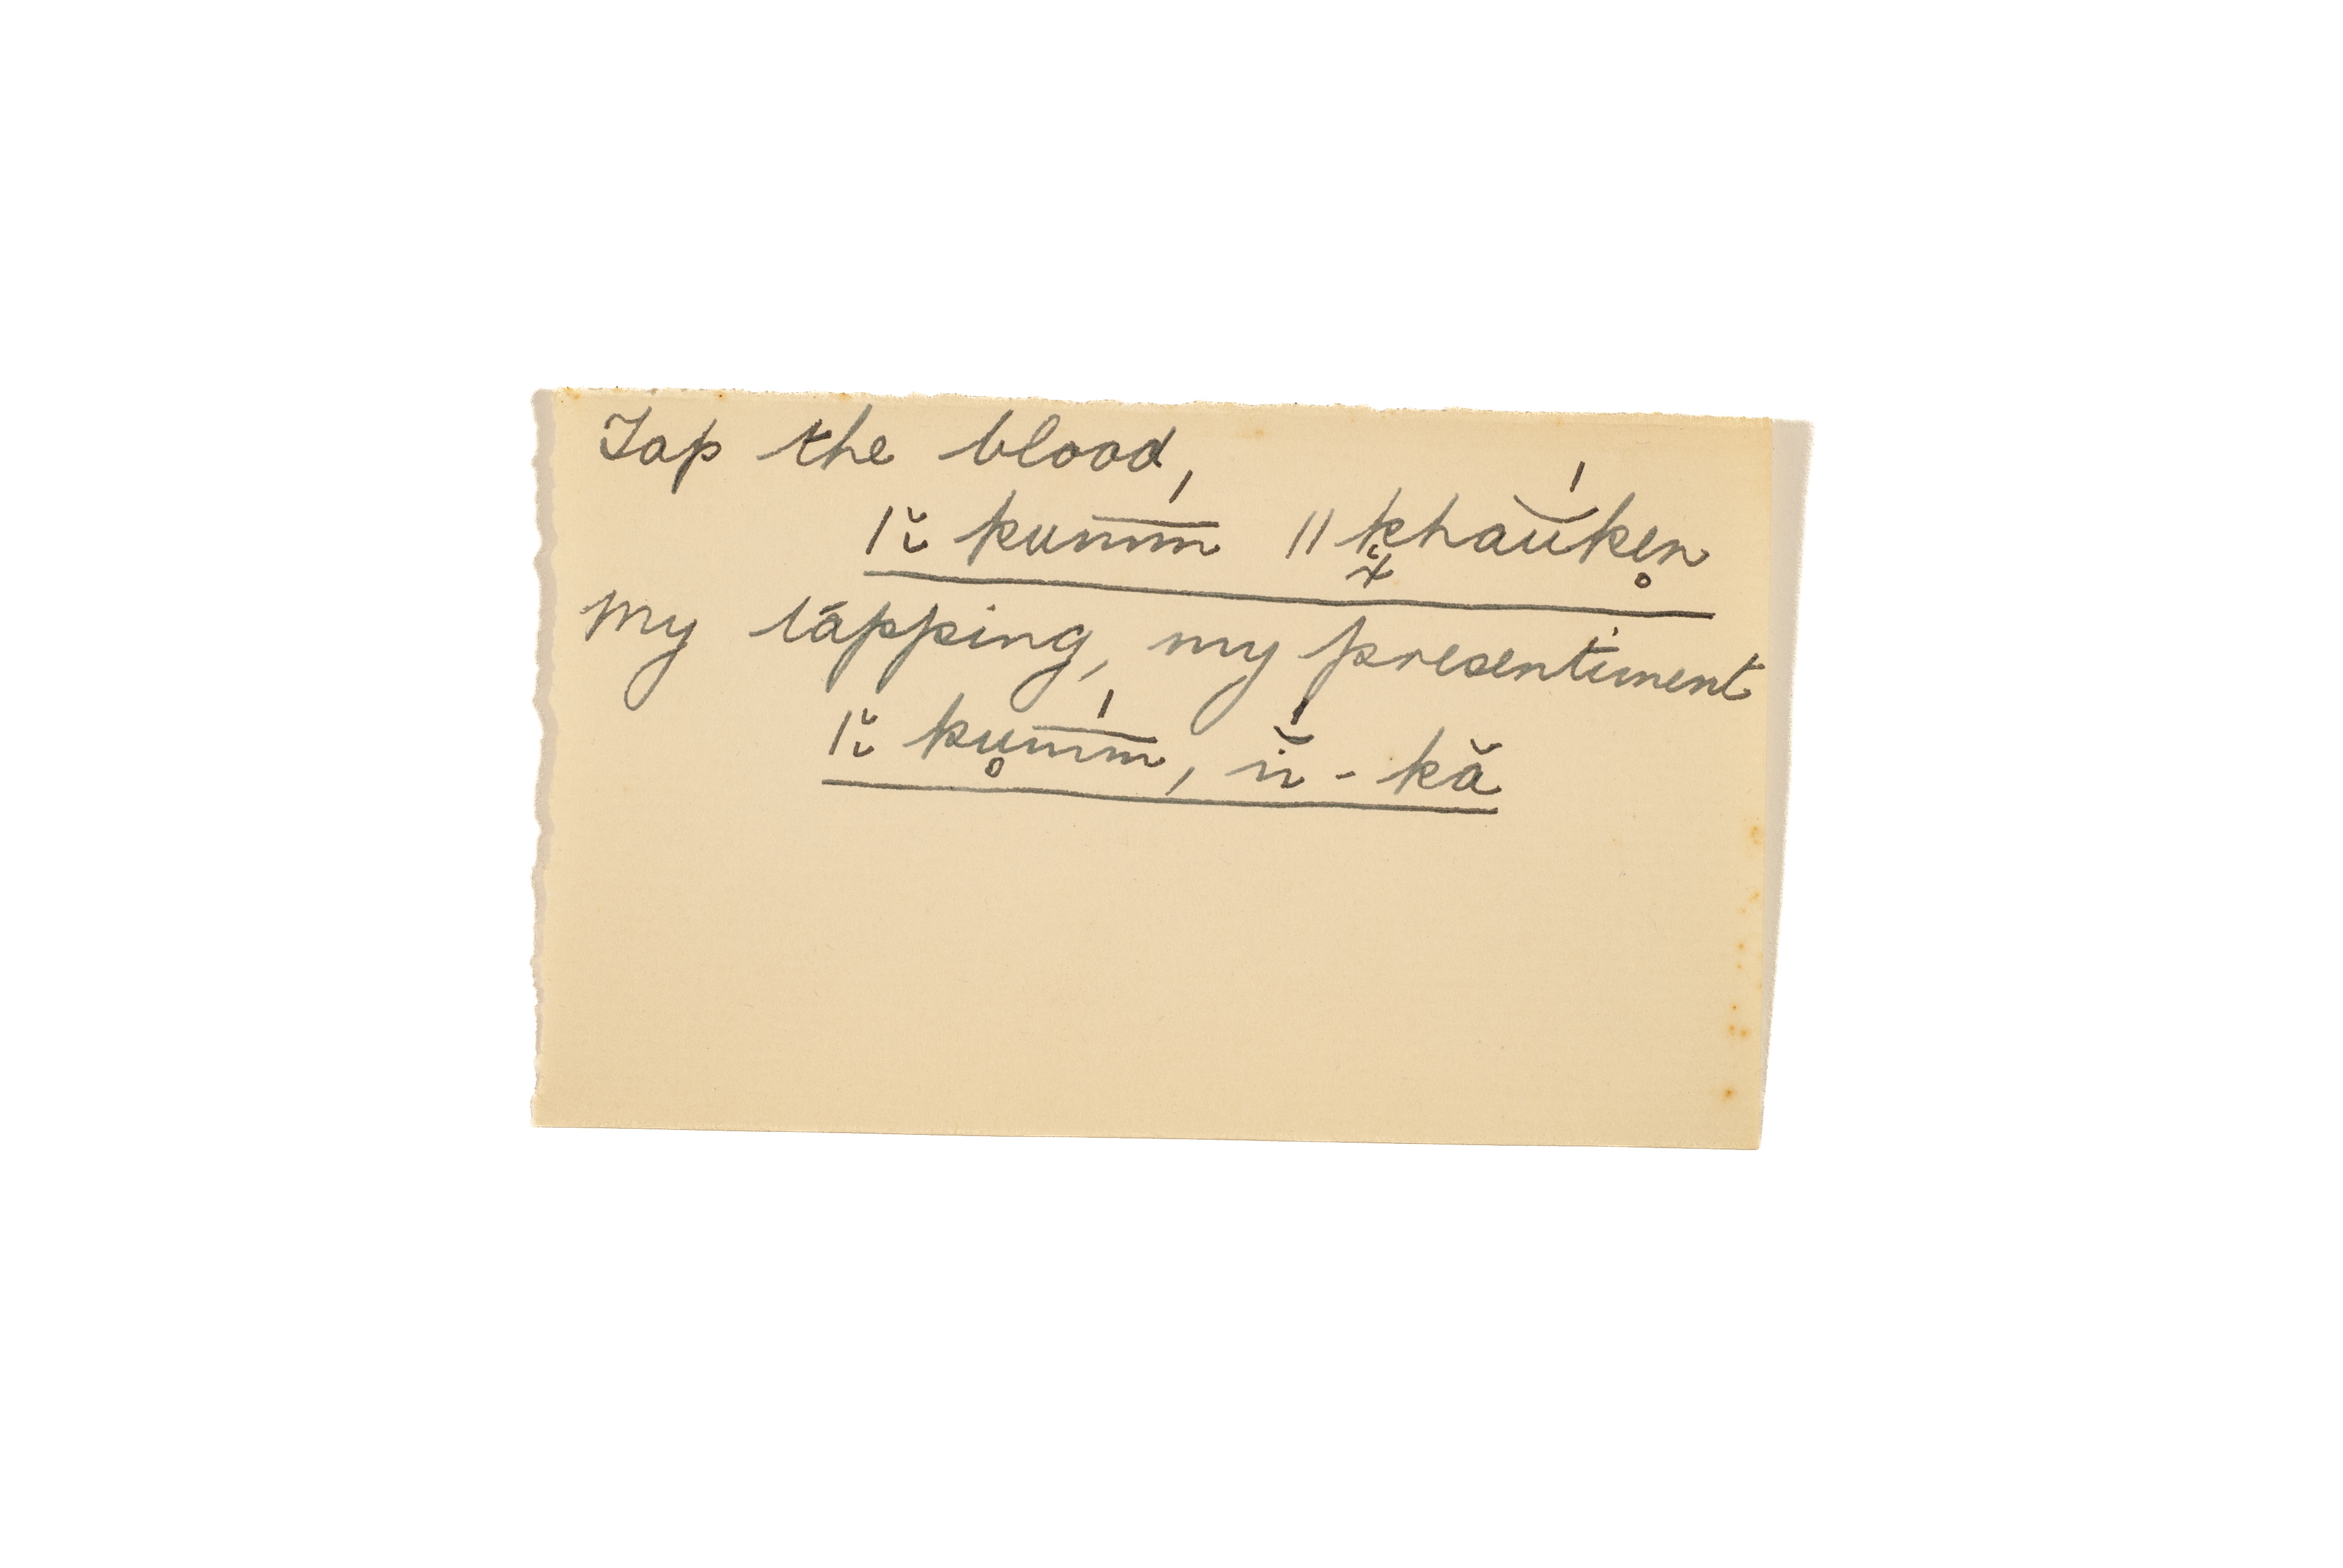 Tap the blood,
|ĭ kum̅m̅́ ||k̯͓ha͝úken̥
My tăpping, my presentiment
|ĭ ku̥m̅m̅́, ń̆-kă